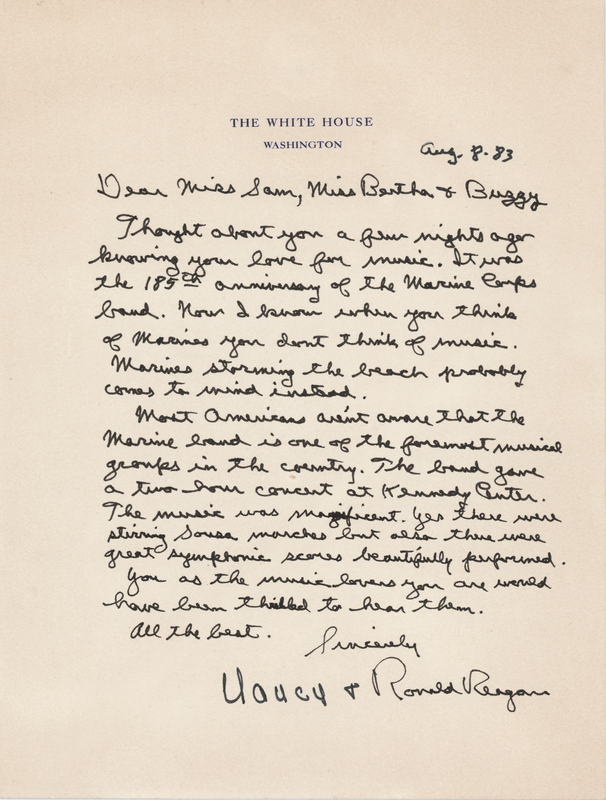 THE WHITE HOUSE
WASHINGTON
Aug. 8-83
Dear Miss Sam, Miss Bertha & Buzzy
Thought about you a few nights ago
knowing your love for music. It was
the 185th anniversary of the Marine Corps
band. Now I know when you think
of Marines you dont think of music.
Marines storming the beach probably
comes to mind instead.
Most Americans aren't aware that the
Marine band is one of the foremost musical
groups in the country. The band gave
a two hour concert at Kennedy Center.
The music was magnificent. Yes there were
stirring Sousa marches but also there were
great symphonic scores beautifully performed.
You as the music lovers you are would
have been thrilled to hear them.
All the best.
Sincerely
Nancy & Ronald Reagan